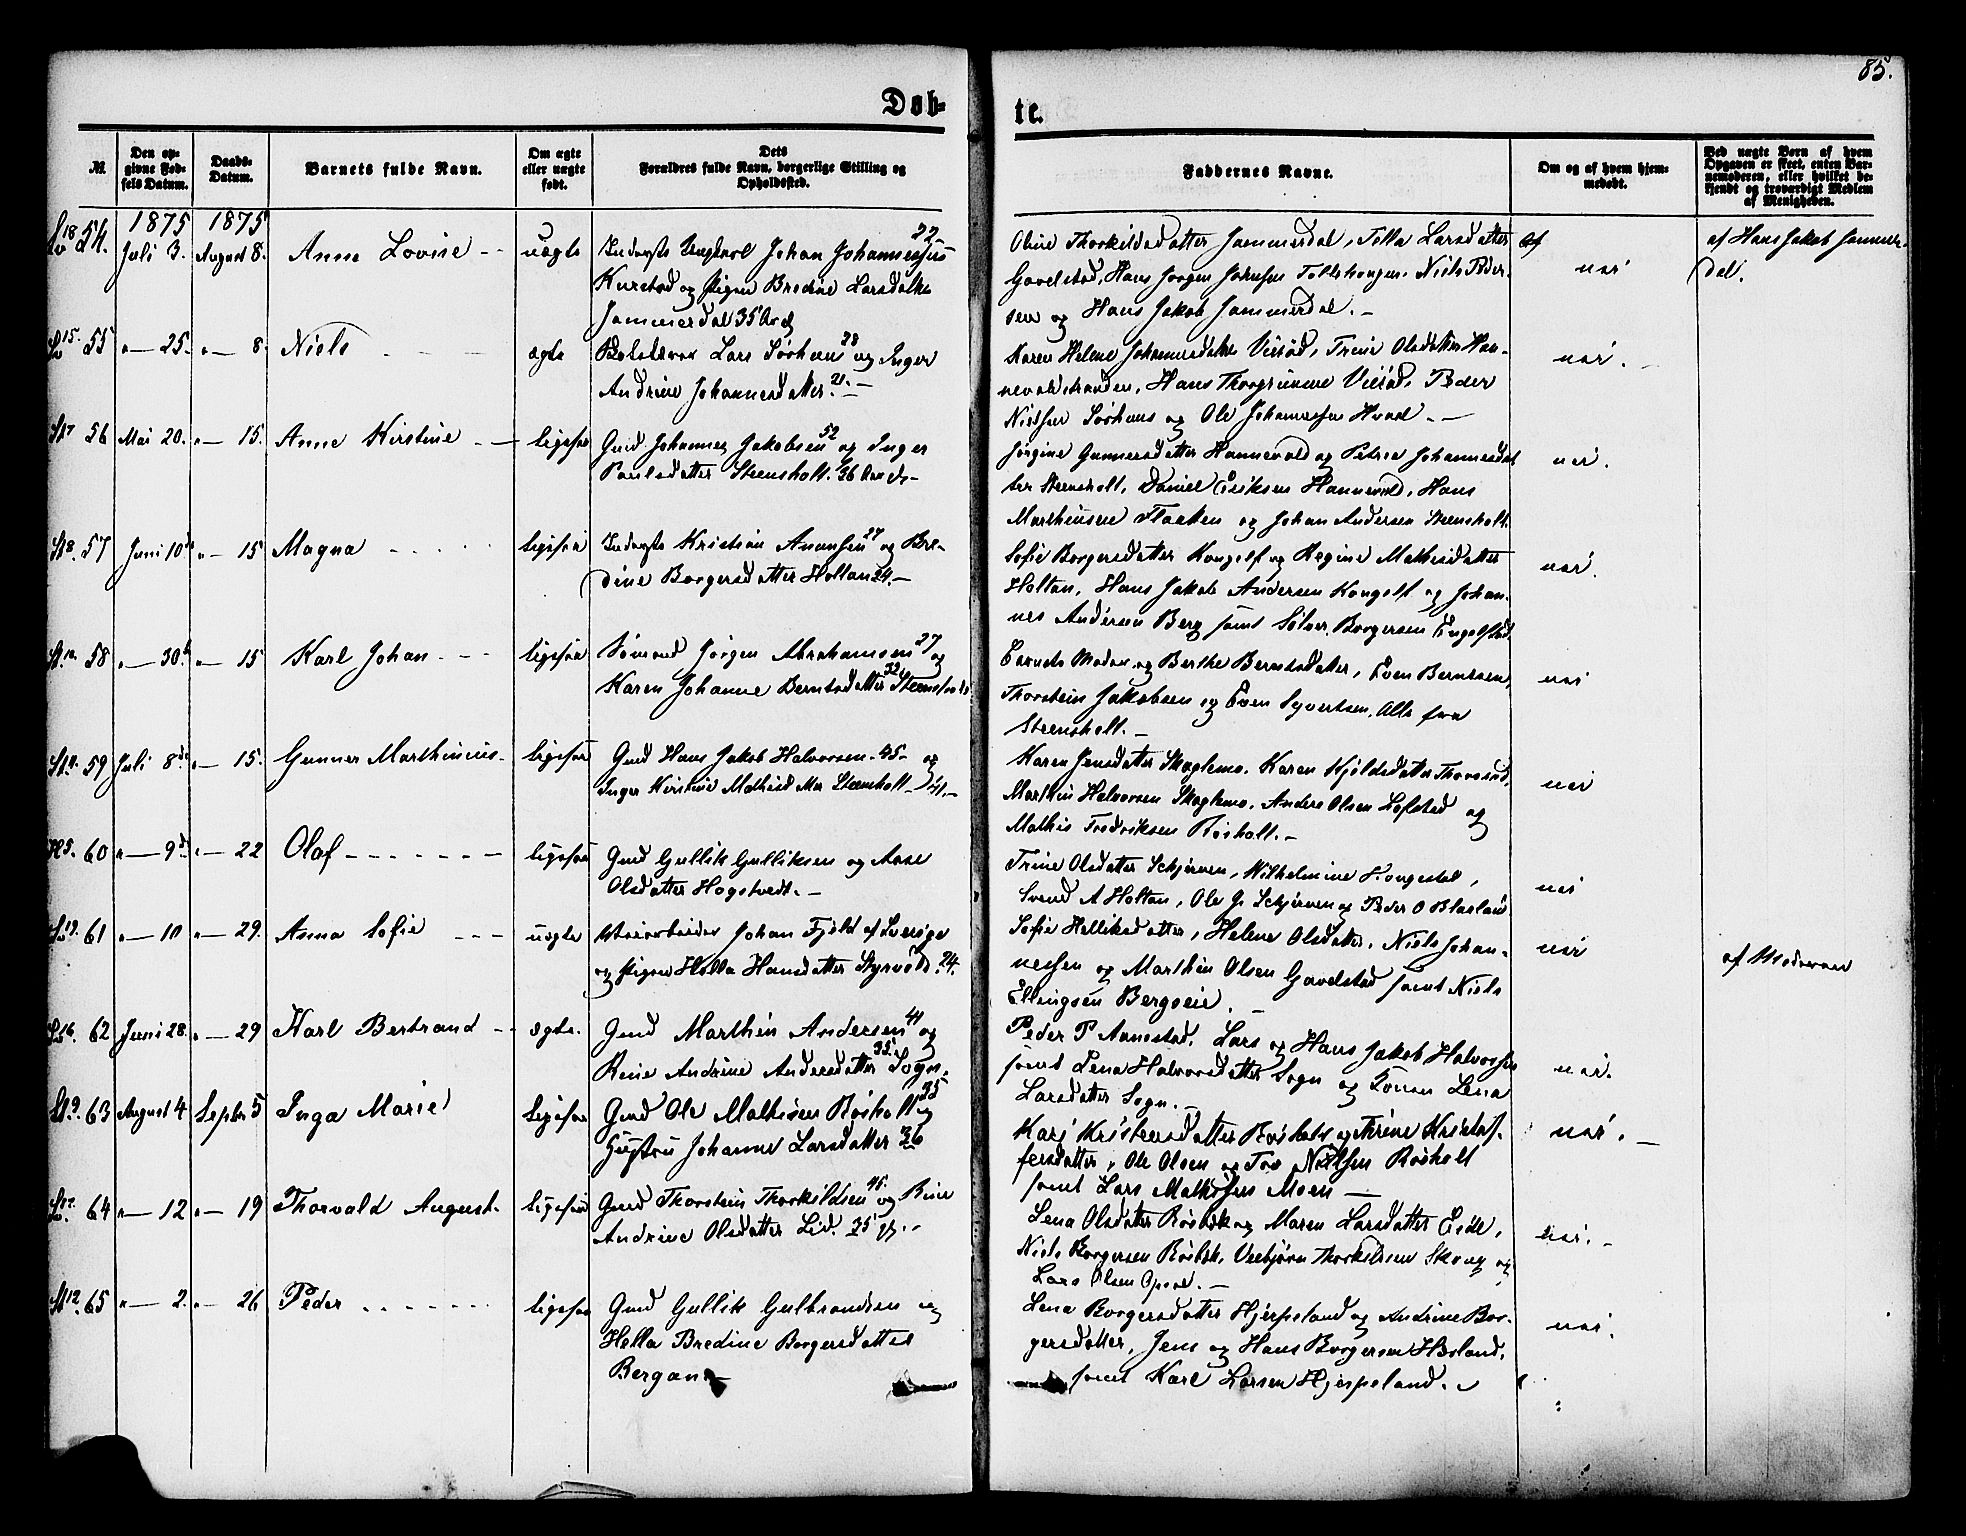 85.
Døb-
te.
№
Den op-
givne Fød-
sels Datum.
Daabs-
Datum.
Barnets fulde Navn.
Om ægte
eller uægte
født.
Dets
Forældres fulde Navn, borgerlige Stilling og
Opholdssted.
Faddernes Navne.
Om og af hvem hjem-
medøbt.
Ved uægte Børn af hvem
Opgaven er skeet, enten Bar-
nemoderen, eller hvilket be-
kjendt og troværdigt Medlem
af Menigheden.
1875 1875
54. Juli 3. August 8. Anne Lovise uægte
Johan Johannessen 22
og Pigen Bredine Larsdatter
Jammerdal 35
Oline Thorkildsdatter Jammerdal, Larsdatter
Gavelstad, Hans Jørgen Niels Peder-
sen og Hans Jakob Jammerdal.
nei
af Hans Jakob Jammer-
dal.
55 25. 8. Niels ægte
Lars 28 og Inger
Andrine Johannesdatter. 21.
Karen Helene Johannesdatter Trine Olsdatter Han-
nevoldstranden, Hans Peder
Nielsen og Ole Johannessen
nei.
56 Mai 20. 15. Anne Kirstine ligesaa
Gmd Johannes Jakobsen 52 og Inger
Paulsdatter Steensholt. 36
Jørgine Gunnersdatter Hannevold og Petrea Johannesdat
ter Steensholt, Daniel Eriksen Hannevold, Hans
og Johan Andersen Steensholt.
nei.
57 Juni 10 15 Magna ligesaa
Inderste Kristian 27 og Bre-
dine Borgersdatter Holtan 24.
Sofie Borgersdatter og Regine Mathisdatter
Holtan, Hans Jakob Andersen og Johan-
nes Andersen Berg samt Sølver Borgersen
nei.
58 30 15 Karl Johan ligesaa
Sømand Jørgen Abrahamsen 27 og
Karen Johanne Berntsdatter 32 Steensholt
Barnets Moder og Berthe Berntsdatter, Even Berntsen,
Thorstein Jakobsen og Even Syvertsen, Alle fra
Steensholt.
nei
59 Juli 8 15. Gunner Marthinius ligesaa
Gmd Hans Jakob Halvorsen 45 og
Inger Kirstine Mathisdatter Steensholt 41.
Karen Jensdatter Skoglemo, Karen Kjeldsdatter
Marthin Halvorsen Skoglemo, Anders Olsen Lofstad og
Mathis Fredriksen Røsholt.
nei
60 9 22 Olaf ligesaa
Gmd Gullik Gulliksen og Anne
Olsdatter Hogstvedt.
Trine Olsdatter Schjerven, Wilhelmine
Svend A Holtan, Ole G. Schjerven og Peder O
nei
61 10 29. Anna Sofie uægte
Johan Fjeld af Sverige
og Pigen Hella Hansdatter Styrvold. 24.
Sofie Helliksdatter, Helene Olsdatter, Niels Johan-
nessen og Marthin Olsen Gavelstad samt Niels
Ellingsen
nei
af Moderen
62 Juni 28. 29 Karl Bertrand ægte.
Gmd Marthin Andersen 41 og
Rine Andrine Andersdatter 35 Sogn.
Peder P Aanestad, Lars og Hans Jakob Halvorsen
samt Lena Halvorsdatter Sogn og Lena
Larsdatter Sogn.
nei.
63 August 4 Septbr 5 Inga Marie ligesaa
Gmd Ole Mathisen Røsholt 35 og
Hustru Johanne Larsdatter 36
Kari Kristensdatter og Trine Kristof-
fersdatter, Ole Olsen og Tov Nielsen Røsholt
samt Lars Mathisen Moen
nei.
64 12 19 Thorvald August. ligesaa
Gmd Thorstein Thorkildsen 45. og Rine
Andrine Olsdatter Lid. 35
Lena Olsdatter og Maren Larsdatter Eide,
Niels Borgersen Vebjørn Thorkildsen Skoug og
Lars Olsen
nei.
65 2. 26 Peder ligesaa
Gmd Gullik Gulbrandsen og
Hella Bredine Borgersdatter
Bergan.
Lena Borgersdatter Hjerpeland og Andrine Bor-
gersdatter, Jens og Hans Borgersen
samt Karl Larsen Hjerpeland.
nei.